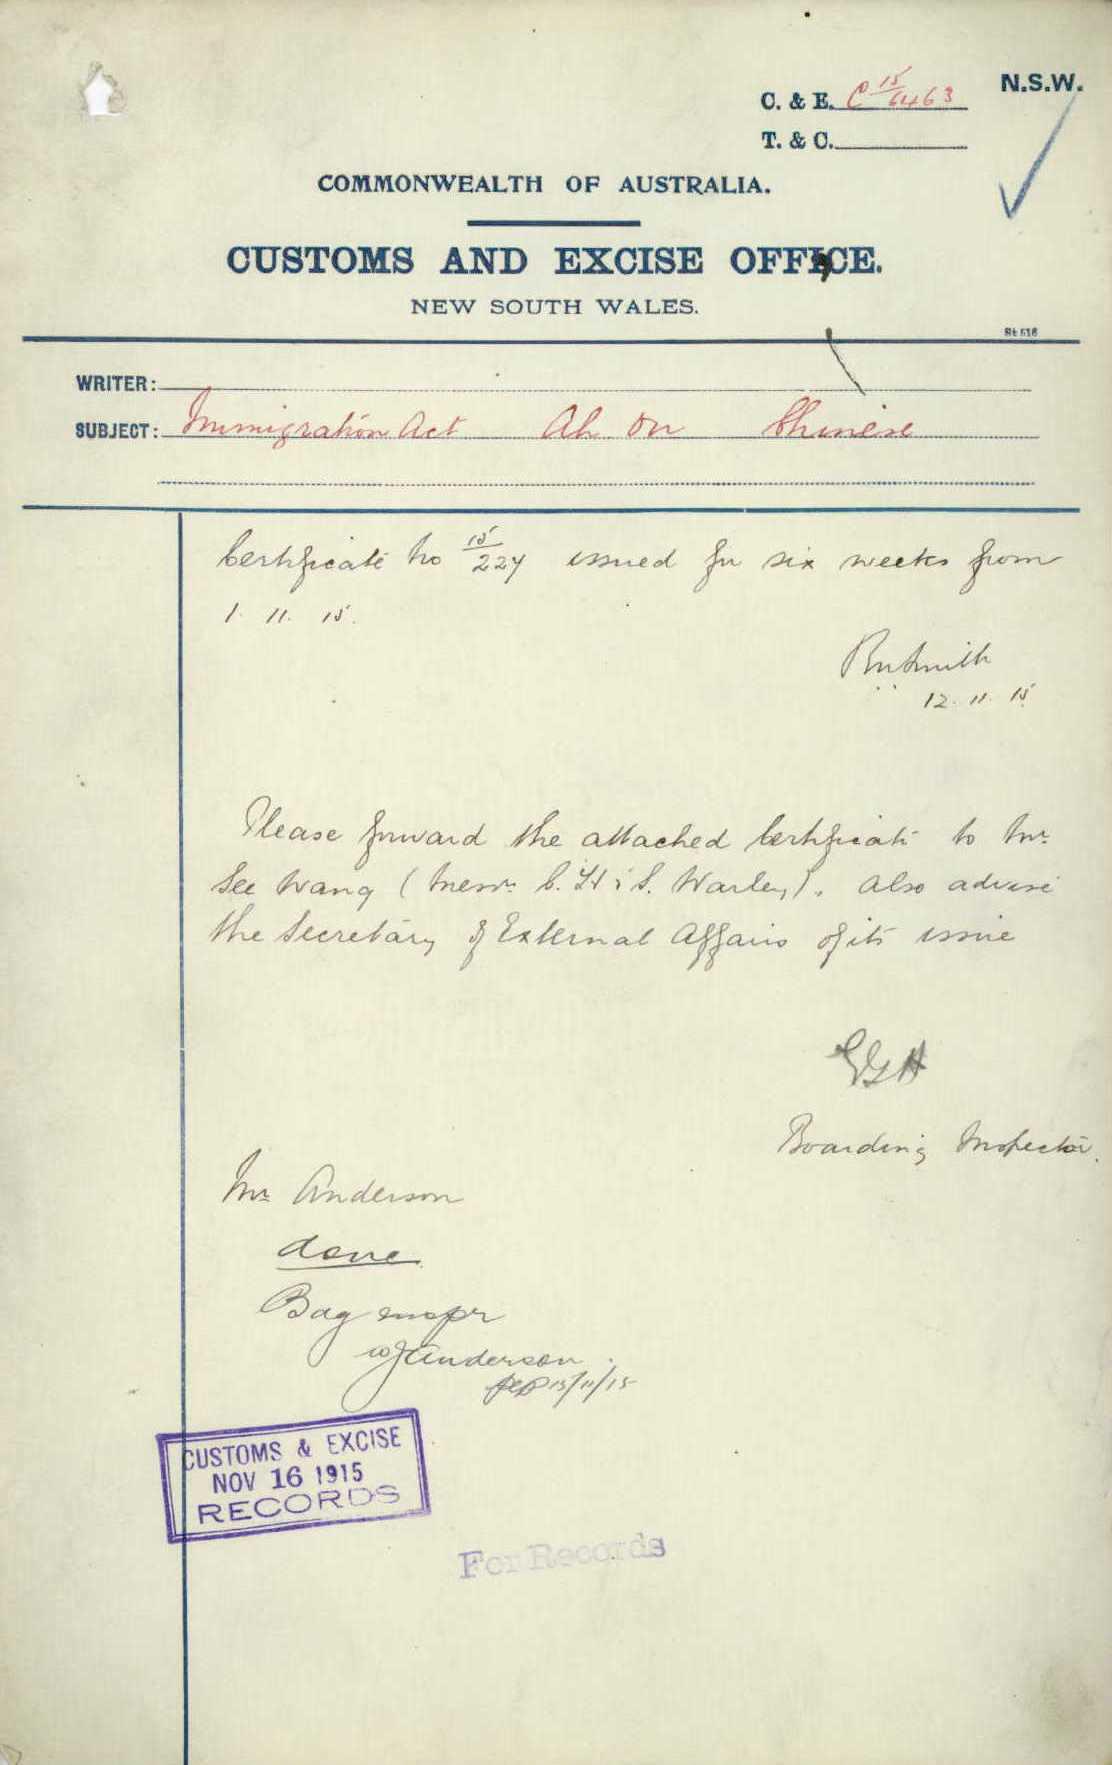 N.S.W.
C. & E. C 15/6463
T. & C.
COMMONWEALTH OF AUSTRALIA.
CUSTOMS AND EXCISE OFFICE.
NEW SOUTH WALES.
St 516
WRITER:
SUBJECT: Immigration Act Ah On Chinese
Certificate No 15/227 issued for six weeks from
1. 11. 15.
Smith
12. 11. 15
Please forward the attached Certificate to Mr
See Wang (Messrs C. H & S. Warley). Also advise
the Secretary of External Affairs of its issue
Boarding Inspector.
Mr Anderson
done
Bag inspr
WJ Anderson
15/11/15
CUSTOMS & EXCISE
NOV 16 1915
RECORDS
For Records